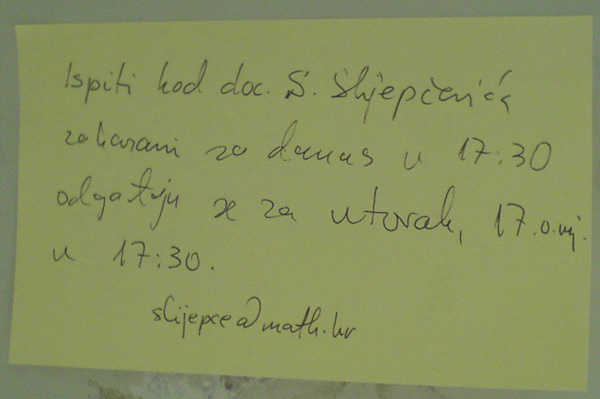 Ispiti kod doc. S. Slijepčevića
zakazani za danas u 17:30
odgađaju se za utorak, 17.o.mj.
u 17:30.
slijepce@math.hr